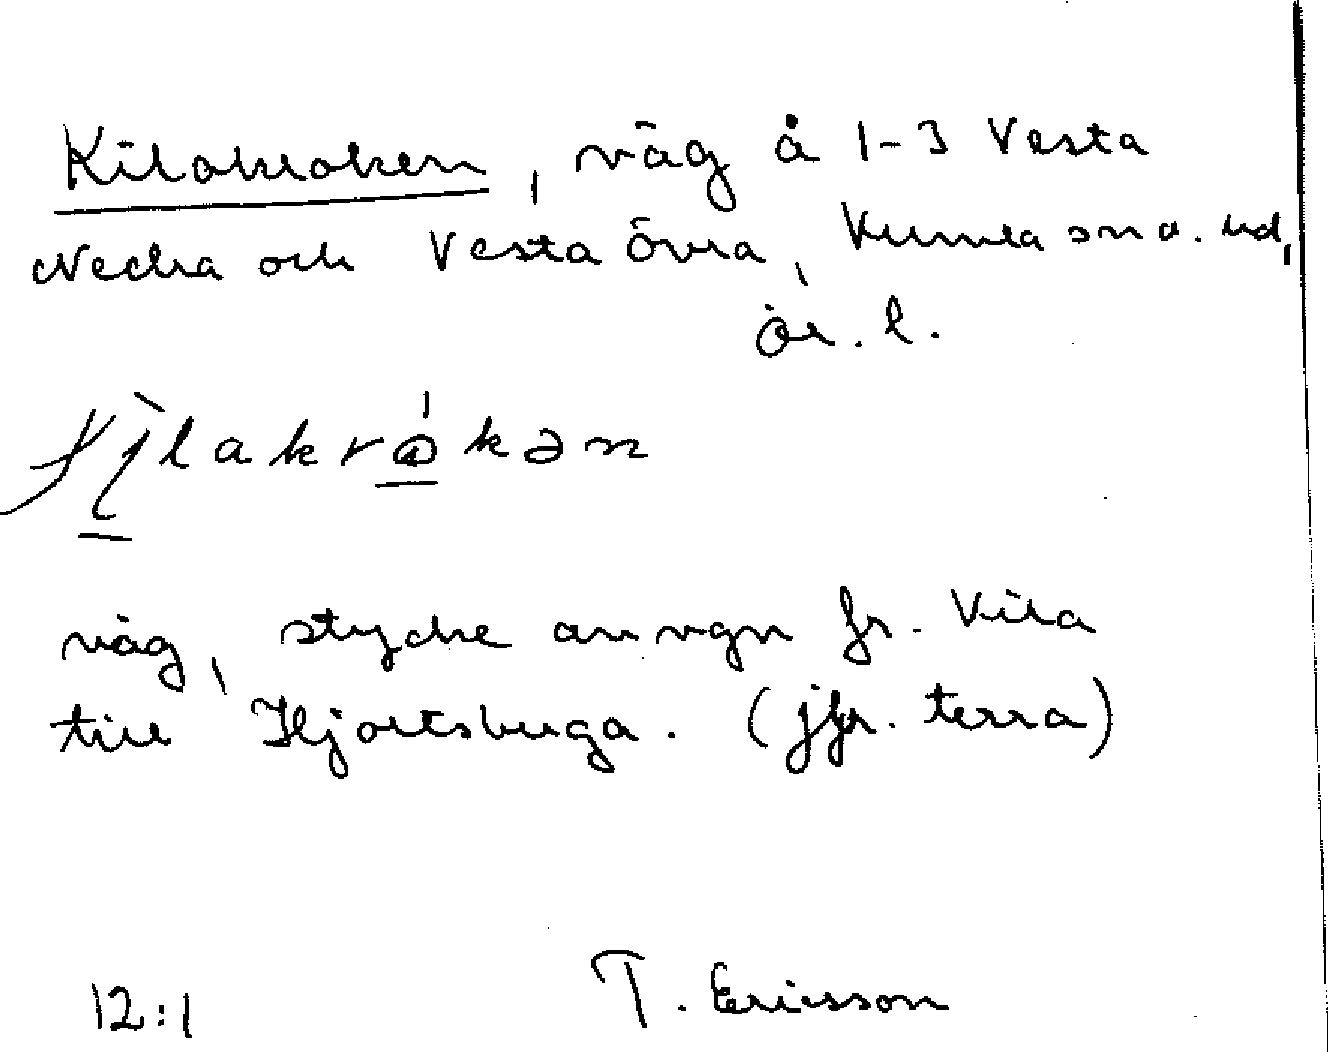 Kilakroken, väg å 1-3 Vesta
Nedra och Vesta Övra, Kumla sn o. hd,
Ör. l.
väg, stycke av vgn fr. Kila
till Hjortsberga. (jfr. terra)
12:1 T. Ericsson